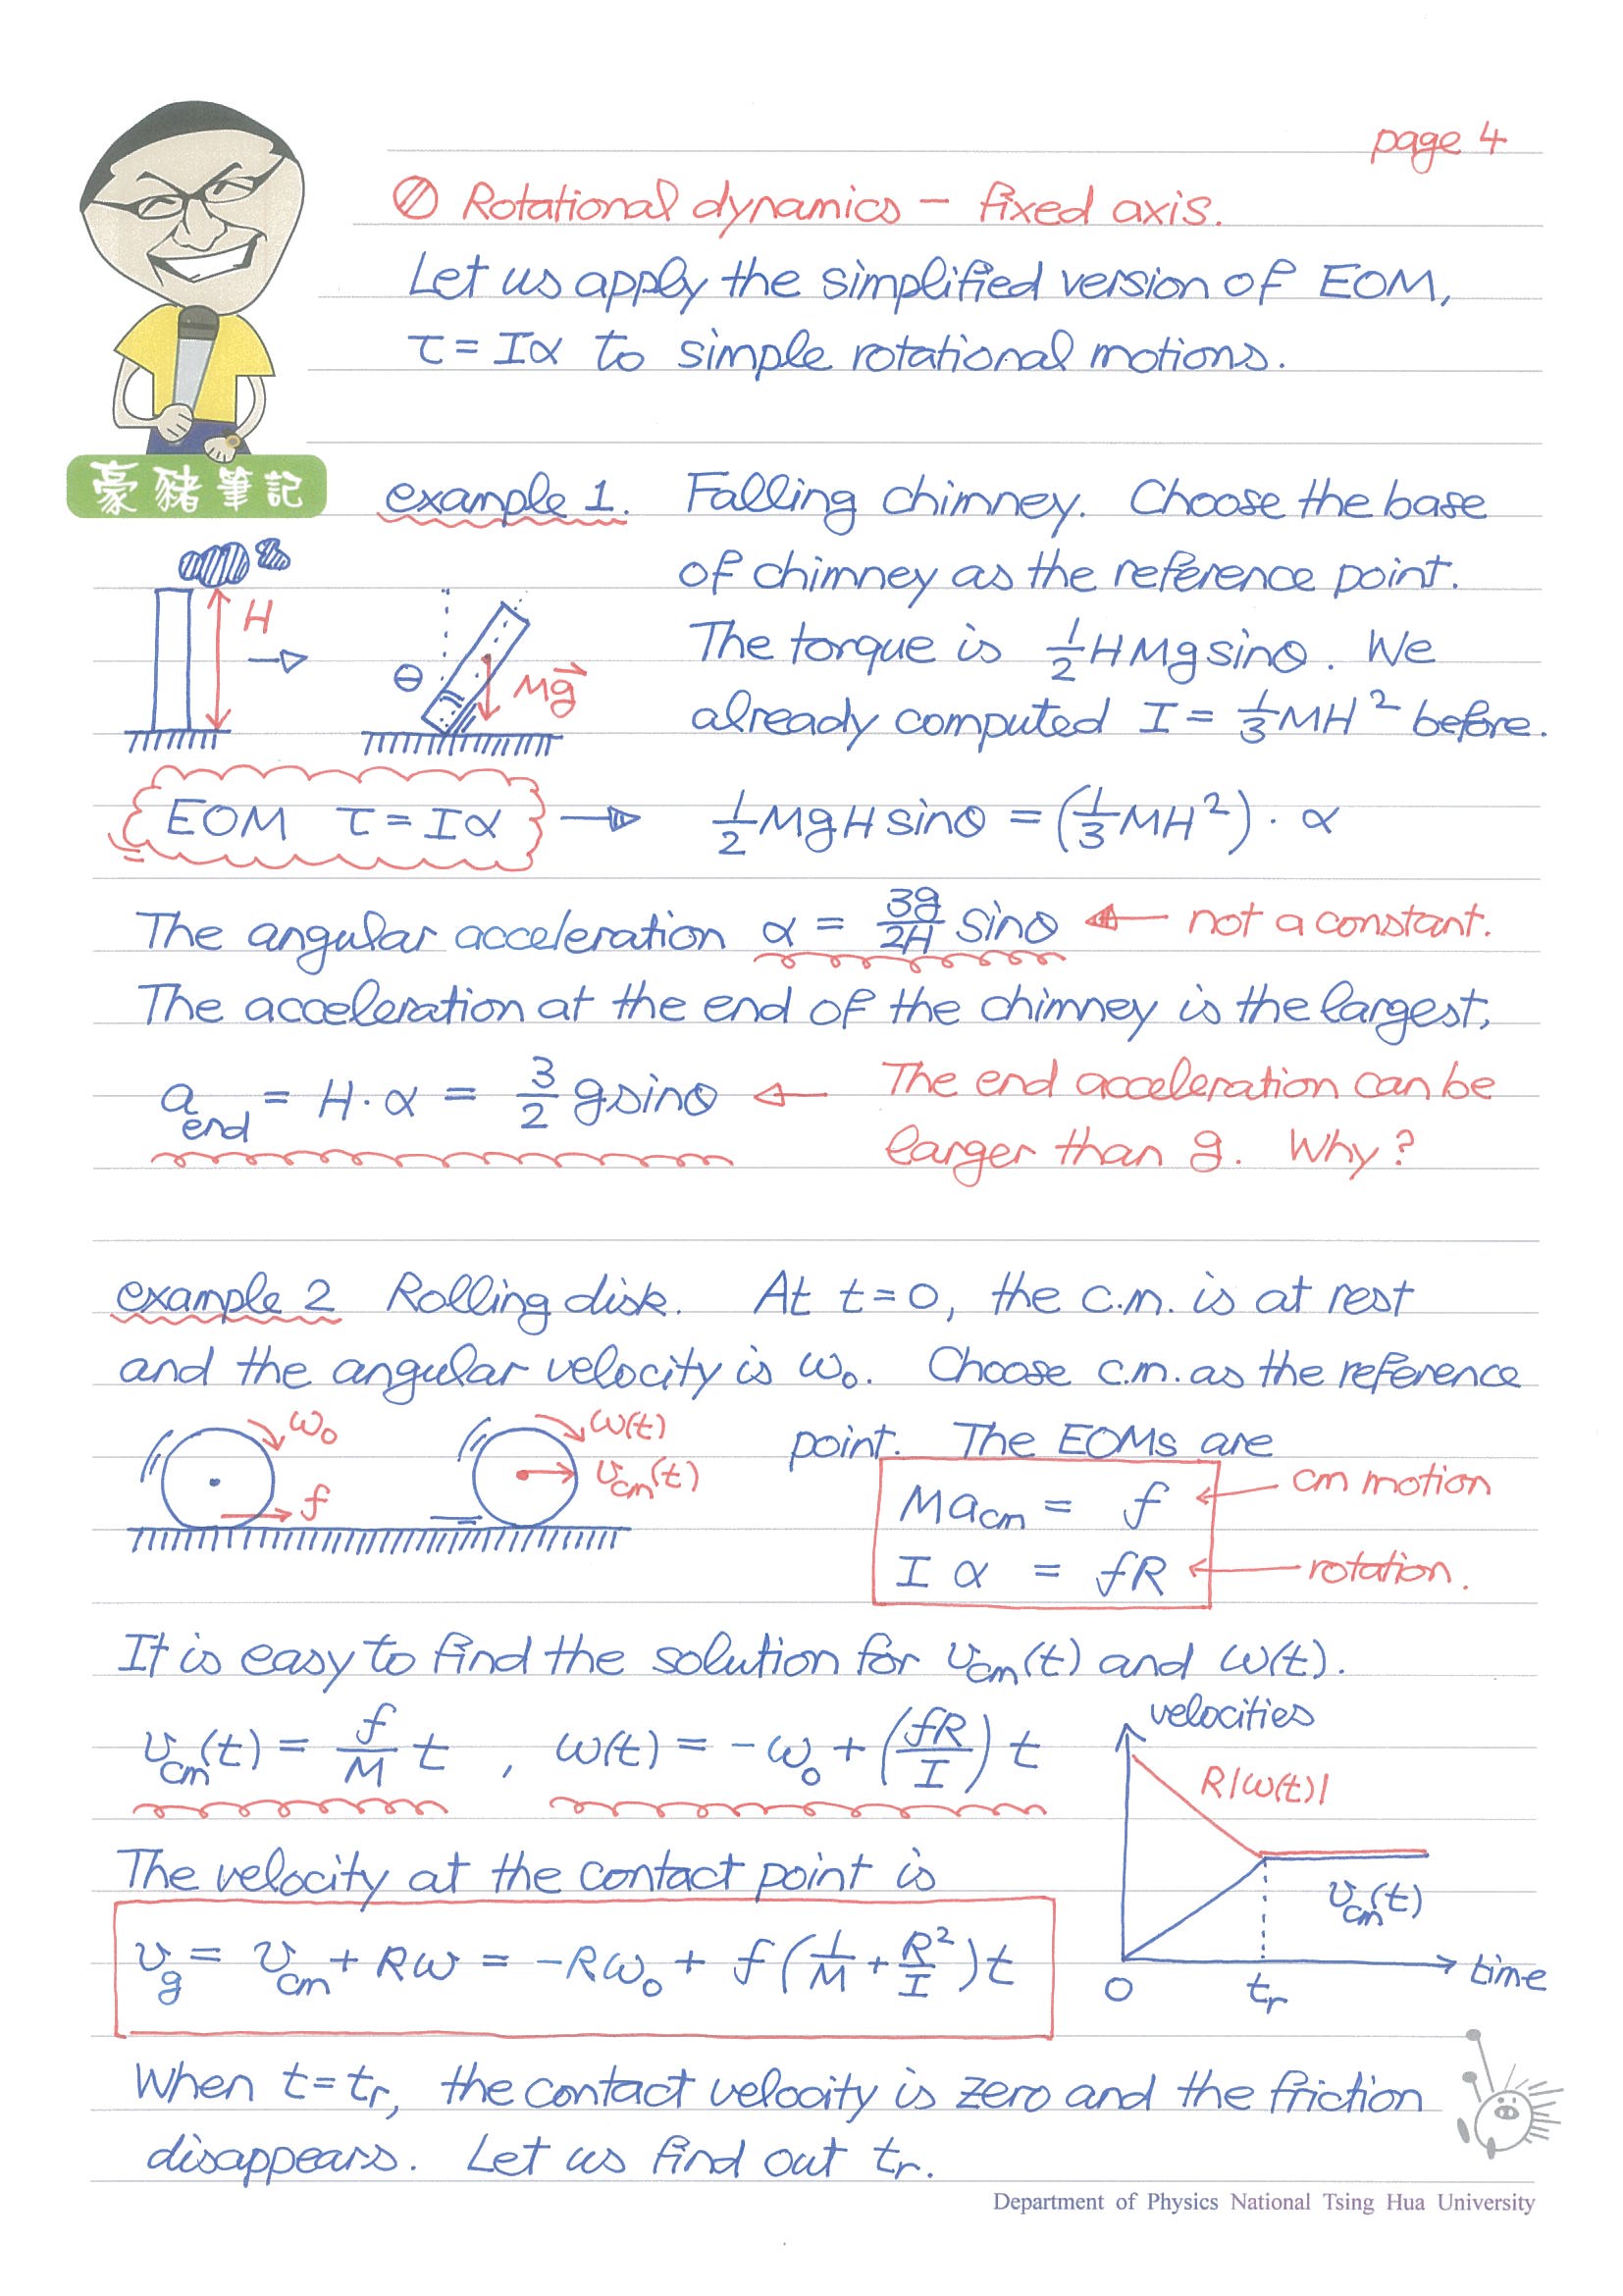 page 4
Rotational dynamics - fixed axis.
Let us apply the simplified version of EOM,
τ = Iα to simple rotational motions.
豪豬筆記
example 1. Falling chimney. Choose the base
of chimney as the reference point.
H
The torque is 1/2 HMg sinθ. We
θ Mg⃗
already computed I = 1/3 MH² before.
EOM τ = Iα → 1/2 MgH sinθ = (1/3 MH²) · α
The angular acceleration α = 3g/2H sinθ ← not a constant.
The acceleration at the end of the chimney is the largest,
a_end = H · α = 3/2 g sinθ ← The end acceleration can be
larger than g. Why?
example 2 Rolling disk. At t=0, the c.m. is at rest
and the angular velocity is ω₀. Choose c.m. as the reference
ω₀ f ω(t) v_cm(t)
point. The EOMs are
Ma_cm = f ← cm motion
I α = fR ← rotation.
It is easy to find the solution for v_cm(t) and ω(t).
v_cm(t) = f/M t , ω(t) = -ω₀ + (fR/I) t
velocities
R|ω(t)|
v_cm(t)
0 t_r time
The velocity at the contact point is
v_g = v_cm + Rω = -Rω₀ + f(1/M + R²/I)t
When t=t_r, the contact velocity is zero and the friction
disappears. Let us find out t_r.
Department of Physics National Tsing Hua University